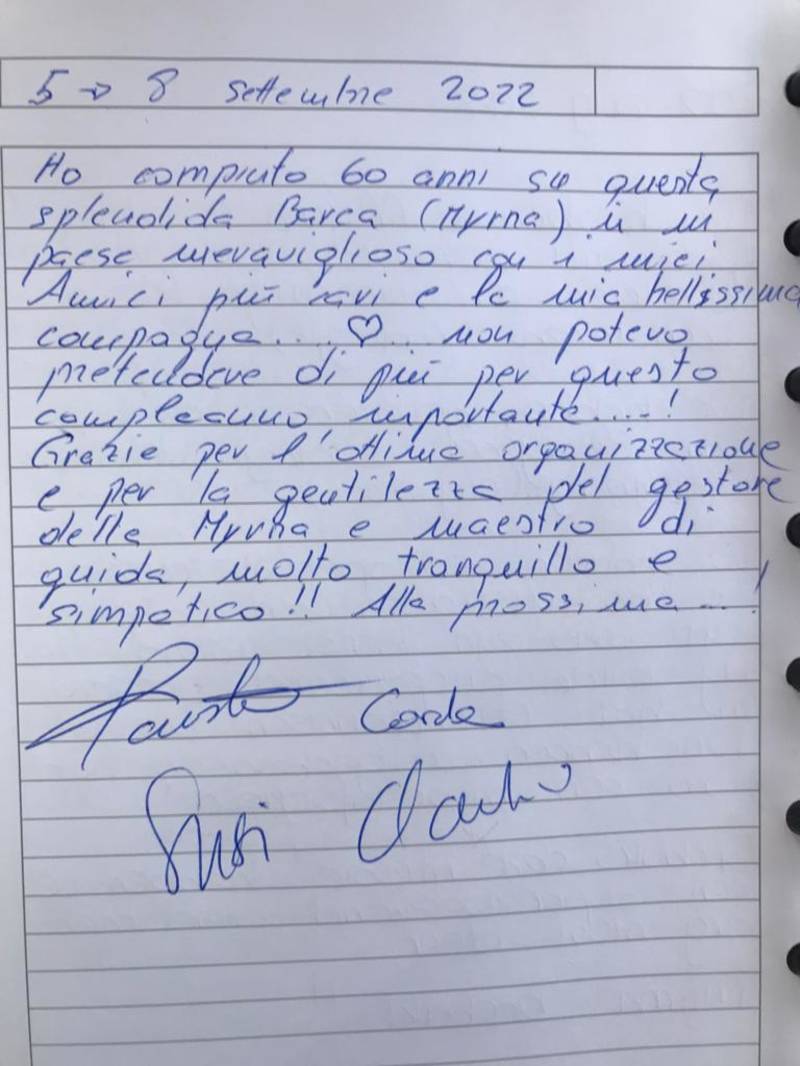 5 → 8 settembre 2022
Ho compiuto 60 anni su questa
splendida Barca (Myrna) in un
paese meraviglioso con i miei
Amici più cari e la mia bellissima
compagna.... ♡... non potevo
pretendere di più per questo
compleanno, importante....!
Grazie per l'ottima organizzazione
e per la gentilezza del gestore
della Myrna e maestro di
guida, molto tranquillo e
simpatico!! Alla prossima...!
Fausto Corda
Susi